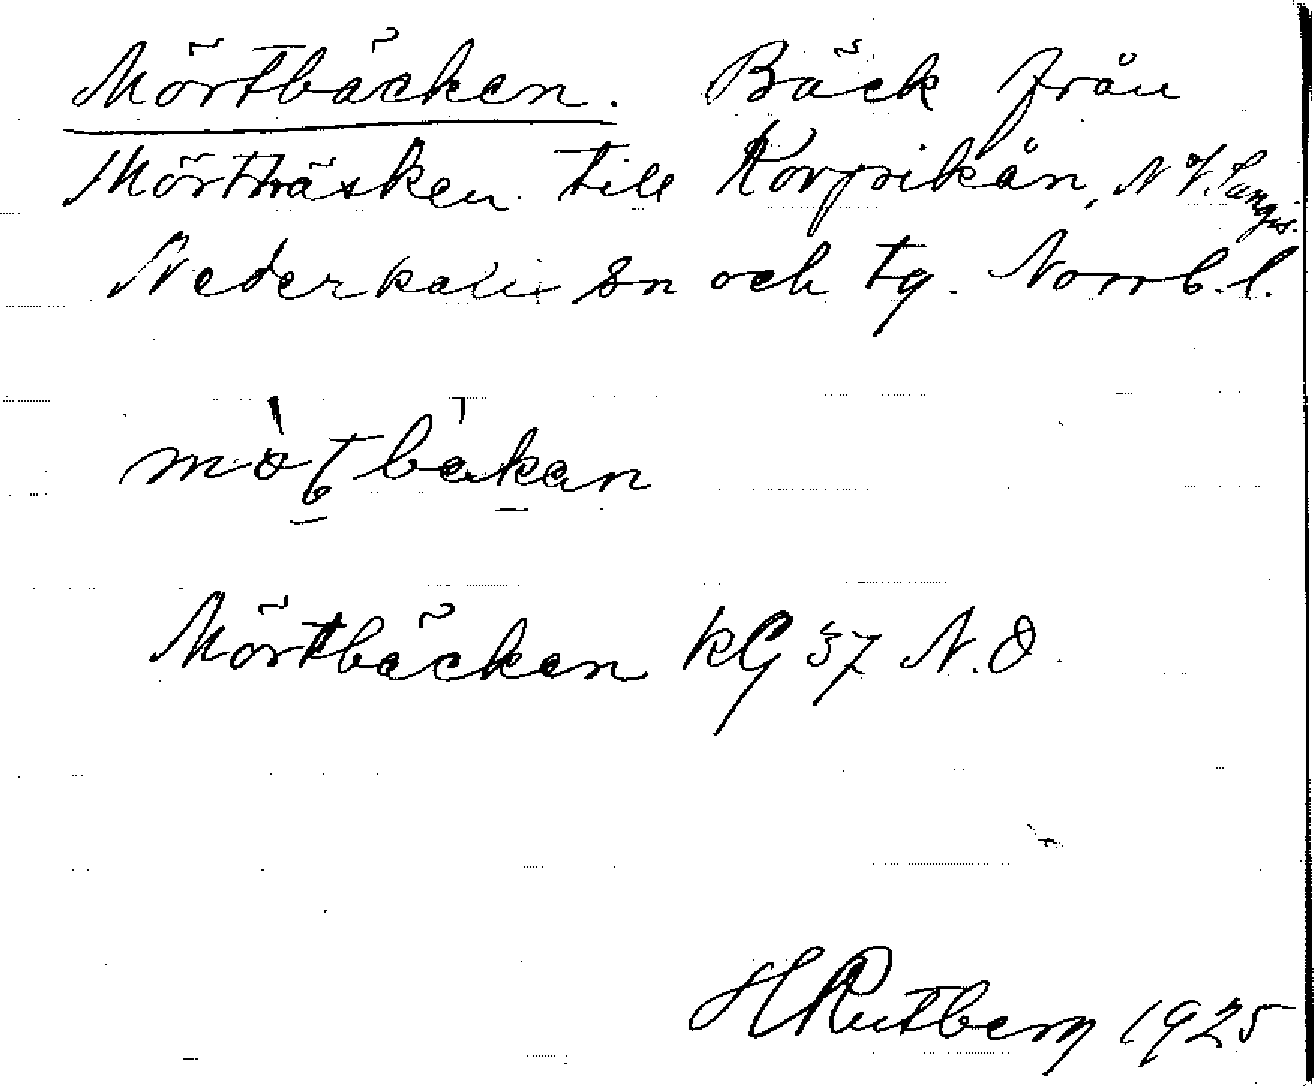 Mörtbäcken. Bäck från
Mörtträsken till Korpikån, N V. Sangis.
Nederkalix sn och tg. Norrb. l.
mö̀ṭbäkan
Mörtbäcken kG 37 N.O.
H Rutberg 1925